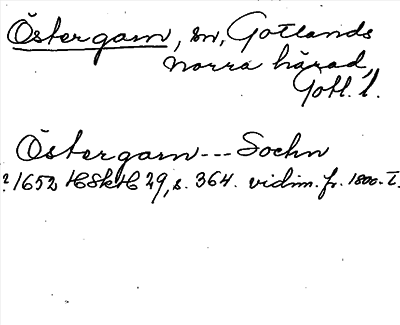 Östergarn, sn, Gotlands
norra härad,
Gotl. l.
Östergarn---Sochn
? 1652 HSkH 29, s. 364. vidim. fr. 1800-t.